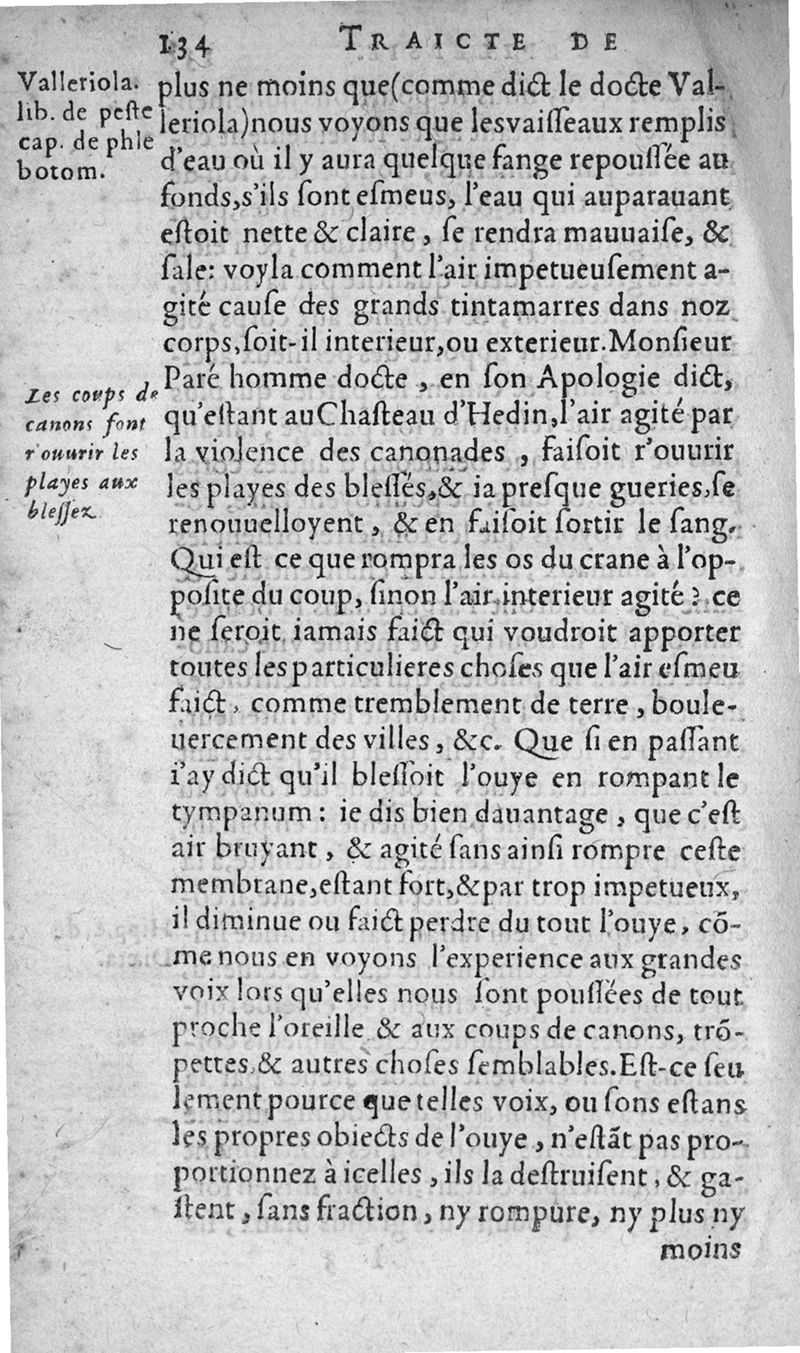 134 TRAICTE DE
Valleriola.
lib. de peste
cap. de phle
botom.
plus ne moins que(comme dict le docte Val-
leriola)nous voyons que lesvaiſſeaux remplis
d'eau où il y aura quelque fange repouſſée au
fonds,s'ils ſont eſmeus, l'eau qui auparauant
eſtoit nette & claire , ſe rendra mauuaiſe, &
ſale: voyla comment l'air impetueuſement a-
gité cauſe des grands tintamarres dans noz
corps,ſoit-il interieur,ou exterieur.Monſieur
Les coups de
canons font
r'ouurir les
playes aux
bleſſez.
Paré homme docte , en ſon Apologie dict,
qu'eſtant au Chaſteau d'Hedin,l'air agité par
la violence des canonades , faiſoit r'ouurir
les playes des bleſſés,& ia preſque gueries,ſe
renouuelloyent , & en faiſoit ſortir le ſang.
Qui eſt ce que rompra les os du crane à l'op-
poſite du coup, ſinon l'air interieur agité ? ce
ne ſeroit iamais faict qui voudroit apporter
toutes les particulieres choſes que l'air eſmeu
faict , comme tremblement de terre , boule-
uercement des villes , &c. Que ſi en paſſant
i'ay dict qu'il bleſſoit l'ouye en rompant le
tympanum : ie dis bien dauantage , que c'eſt
air bruyant , & agité ſans ainſi rompre ceſte
membrane,eſtant fort,&par trop impetueux,
il diminue ou faict perdre du tout l'ouye, cõ-
me nous en voyons l'experience aux grandes
voix lors qu'elles nous ſont pouſſées de tout
proche l'oreille & aux coups de canons, trõ-
pettes,& autres choſes ſemblables.Eſt-ce ſeu
lement pource que telles voix, ou ſons eſtans
les propres obiects de l'ouye , n'eſtãt pas pro-
portionnez à icelles , ils la deſtruiſent , & ga-
ſtent , ſans fraction , ny rompure, ny plus ny
moins